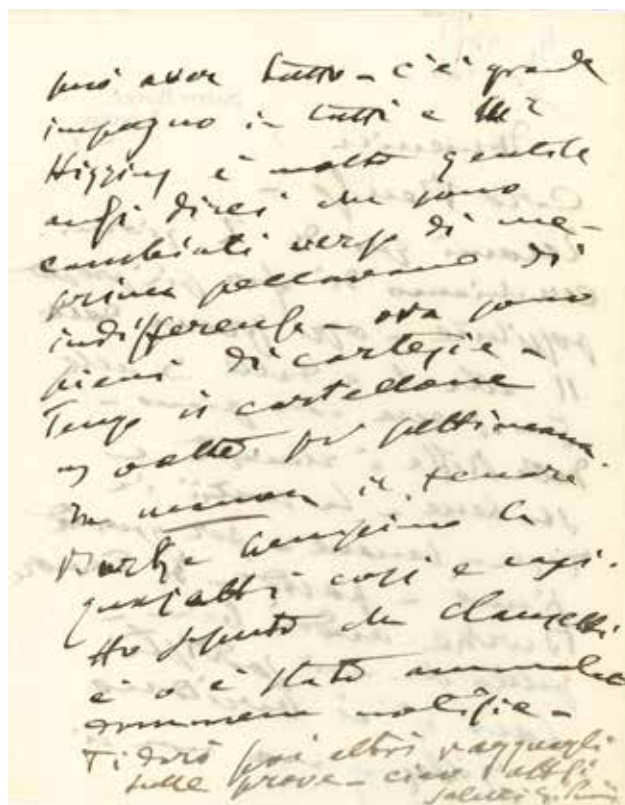 può aver tutto – c'è grande
impegno in tutti e Mr
Higgins è molto gentile
anzi direi che sono
cambiati verso di me –
prima peccavano di
indifferenza – ora sono
pieni di cortesie –
Tengo il cartellone
volte per settimana.
In Manon il tenore
Burke
gli altri così e così.
Ho saputo che Clausetti
è o è stato ammalato
dammene notizie –
Ti darò poi altri ragguagli
sulle prove – ciao
saluti